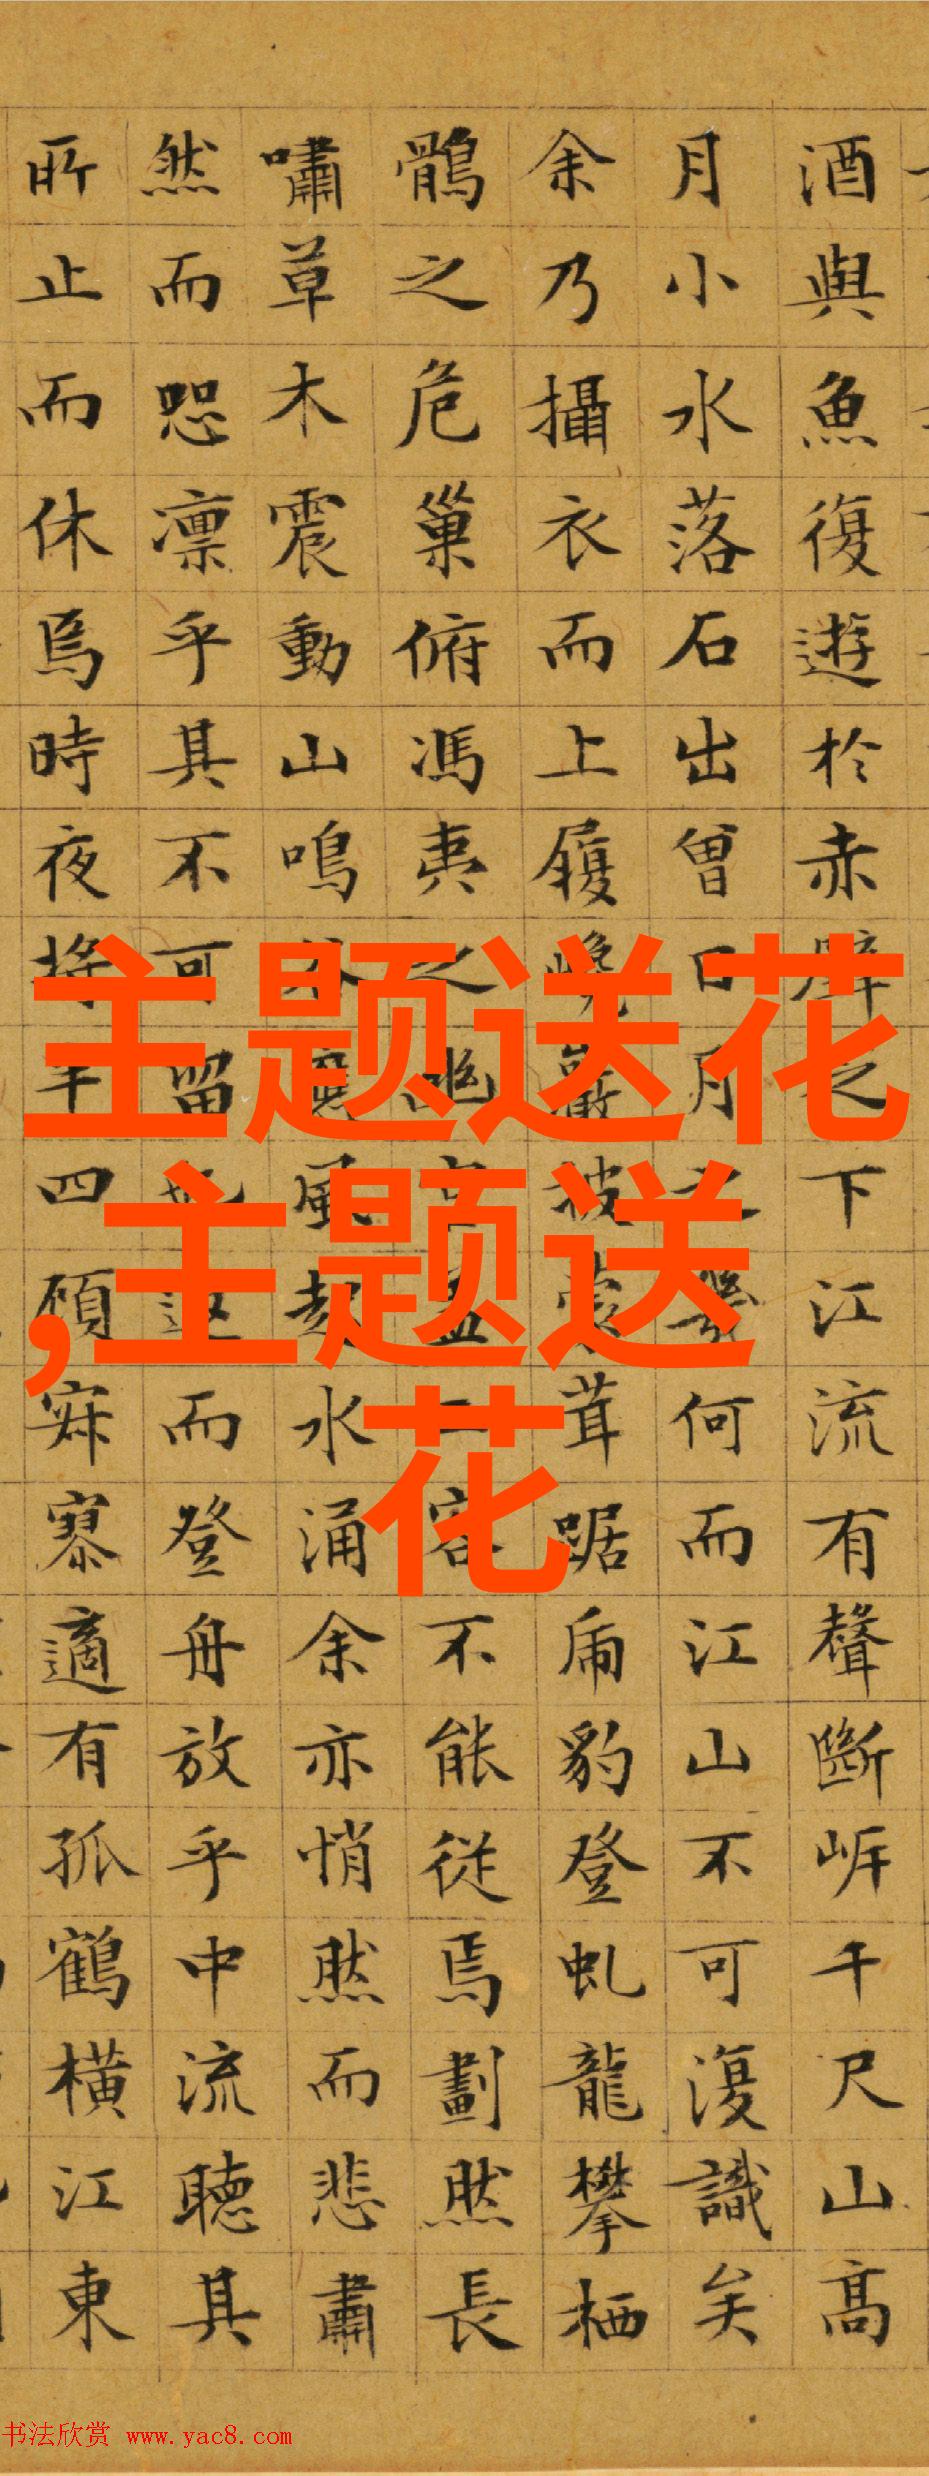 酒與魚復遊於赤壁之下江流有聲斷岸千尺山高
月小水落石出曾日月之幾何而江山不可復識矣
余乃攝衣而上履巉巖披蒙茸踞虎豹登虬龍攀栖
鶻之危巢俯馮夷之幽宮蓋二客不能從焉劃然長
嘯草木震動山鳴谷應風起水涌余亦悄然而悲肅
然而恐凛乎其不可留也返而登舟放乎中流聽其
所止而休焉時夜將半四顧寂寥適有孤鶴橫江東
主题送花
,主题送
花
书法欣赏 www.yac8.com